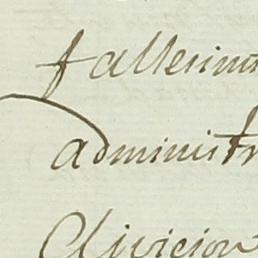 fallesimi
administr
Division